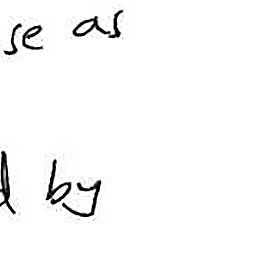 se as
d by